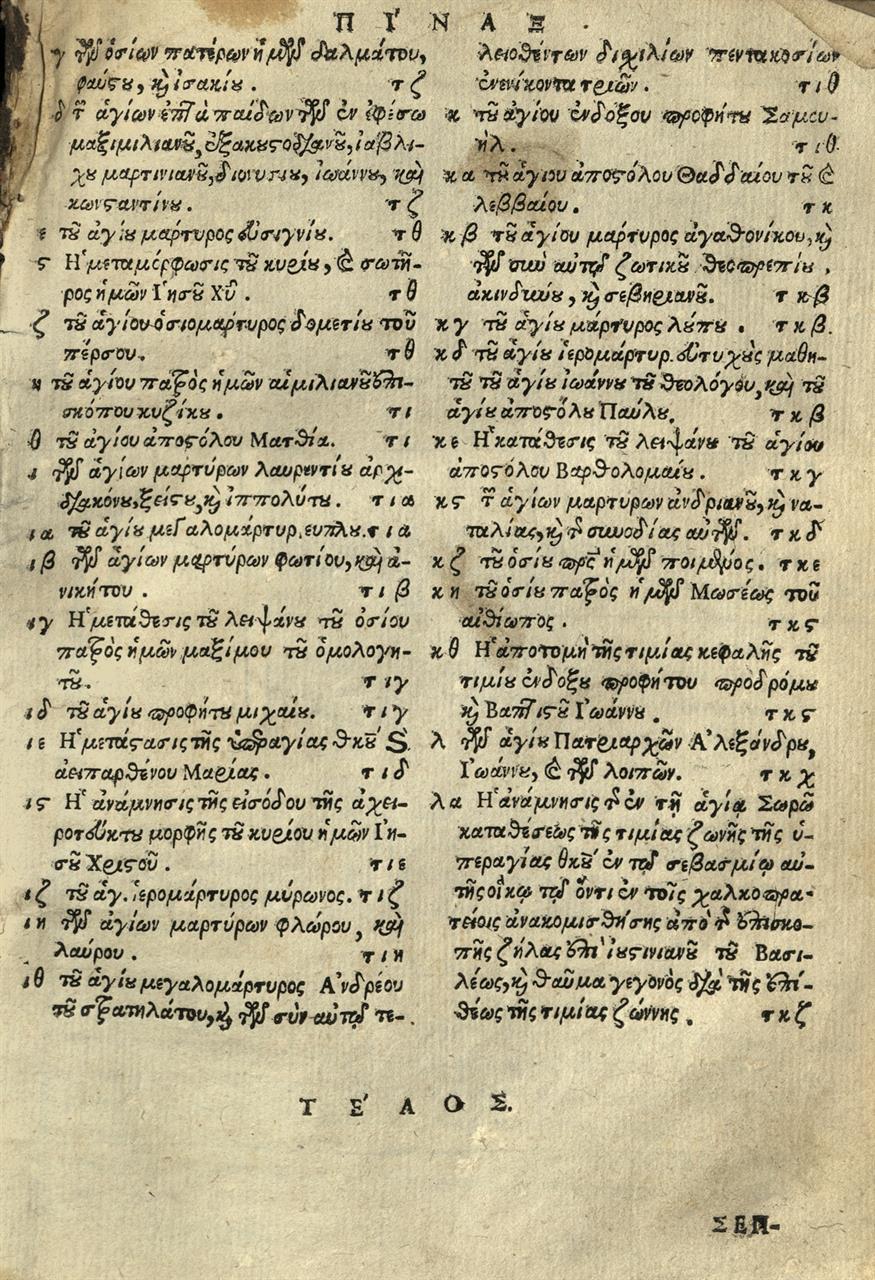 ΠΊΝΑΞ.
γ τῶν ὁσίων πατέρων ἡμῶν δαλμάτου,
φαύστου, κỳ ἰσακίου. τζ
δ τ̃ ἁγίων ἑπτὰ παίδων τῶν ἐν ἐφέσω
μαξιμιλιανοῦ, ἐξακουστοδιανοῦ, ἰαβλί-
χου μαρτινιανοῦ, διονυσίου, ἰωάννου, καὶ
κωνσταντίνου. τζ
ε τοῦ ἁγίου μάρτυρος εὐσιγνίου. τθ
ς Ἡ μεταμόρφωσις τοῦ κυρίου, καὶ σωτῆ-
ρος ἡμῶν Ἰησοῦ Χῦ. τθ
ζ τοῦ ἁγίου ὁσιομάρτυρος δομετίου τοῦ
πέρσου. τθ
η τοῦ ἁγίου πατρὸς ἡμῶν αἰμιλιανοῦ ἐπι-
σκόπου κυζίκου. τι
θ τοῦ ἁγίου ἀποστόλου Ματθία. τι
ι τῶν ἁγίων μαρτύρων λαυρεντίου ἀρχι-
διακόνου, ξείστου, κỳ ἱππολύτου. τια
ια τοῦ ἁγίου μεγαλομάρτυρ. εύπλου. τια
ιβ τῶν ἁγίων μαρτύρων φωτίου, καὶ ἀ-
νικήτου. τιβ
ιγ Ἡ μετάθεσις τοῦ λειψάνου τοῦ ὁσίου
πατρὸς ἡμῶν μαξίμου τοῦ ὁμολογη-
τοῦ. τιγ
ιδ τοῦ ἁγίου προφήτου μιχαίου. τιγ
ιε Ἡ μετάστασις τῆς ὑπεραγίας θκου καὶ
ἀειπαρθένου Μαρίας. τιδ
ις Ἡ ἀνάμνησις τῆς εἰσόδου τῆς ἀχει-
ροτεύκτου μορφῆς τοῦ κυρίου ἡμῶν Ἰη-
σοῦ Χριστοῦ. τιε
ιζ τοῦ ἁγ. ἱερομάρτυρος μύρωνος. τιζ
ιη τῶν ἁγίων μαρτύρων φλώρου, καὶ
λαύρου. τιη
ιθ τοῦ ἁγίου μεγαλομάρτυρος Ἀνδρέου
τοῦ στρατηλάτου, κỳ τῶν σὺν αὐτῷ τε-
λειοθέντων διχιλίων πεντακοσίων
ἐνενίκοντα τριῶν. τιθ
κ τοῦ ἁγίου ἐνδόξου προφήτου Σαμου-
ήλ. τιθ
κα τοῦ ἁγίου ἀποστόλου Θαδδαίου τοῦ καὶ
λεββαίου. τκ
κβ τοῦ ἁγίου μάρτυρος ἀγαθονίκου, κỳ
τῶν σὺν αὐτῷ ζωτικοῦ θεοπρεπίου,
ἀκινδύνου, κỳ σεβηριανοῦ. τκβ
κγ τοῦ ἁγίου μάρτυρος λούπου. τκβ.
κδ τοῦ ἁγίου ἱερομάρτυρ. εὐτυχοῦς μαθη-
τοῦ τοῦ ἁγίου ἰωάννου τοῦ θεολόγου, καὶ τοῦ
ἁγίου ἀποστόλου Παύλου. τκβ
κε Ἡ κατάθεσις τοῦ λειψάνου τοῦ ἁγίου
ἀποστόλου Βαρθολομαίου. τκγ
κς τ̃ ἁγίων μαρτύρων ἀνδριανοῦ, κỳ να-
ταλίας, κỳ τῆς συνοδίας αὐτῶν. τκδ
κζ τοῦ ὁσίου πρς ἡμῶν ποιμένος. τκε
κη τοῦ ὁσίου πατρὸς ἡμῶν Μωσέως τοῦ
αἰθίωπος. τκς
κθ Ἡ ἀποτομὴ τῆς τιμίας κεφαλῆς τοῦ
τιμίου ἐνδόξου προφήτου προδρόμου
κỳ Βαπτιστοῦ Ἰωάννου. τκς
λ τῶν ἁγίου Πατριαρχῶν Ἀλεξάνδρου,
Ἰωάννου, καὶ τῶν λοιπῶν. τκχ
λα Ἡ ἀνάμνησις τῆς ἐν τῇ ἁγίᾳ Σωρῶ
καταθέσεως τῆς τιμίας ζωνῆς τῆς ὑ-
περαγίας θκου ἐν τῷ σεβασμίῳ αὐ-
τῆς οἴκῳ τῷ ὄντι ἐν τοῖς χαλκοπρα-
τείοις ἀνακομισθήσης ἀπὸ τῆς ἐπισκο-
πῆς ζήλας ἐπὶ ἰουστινιανοῦ τοῦ Βασι-
λέως, κỳ θαῦμα γεγονὸς διὰ τῆς ἐπι-
θέως τῆς τιμίας ζώννης. τκζ
ΤΈΛΟΣ.
ΣΕΠ-